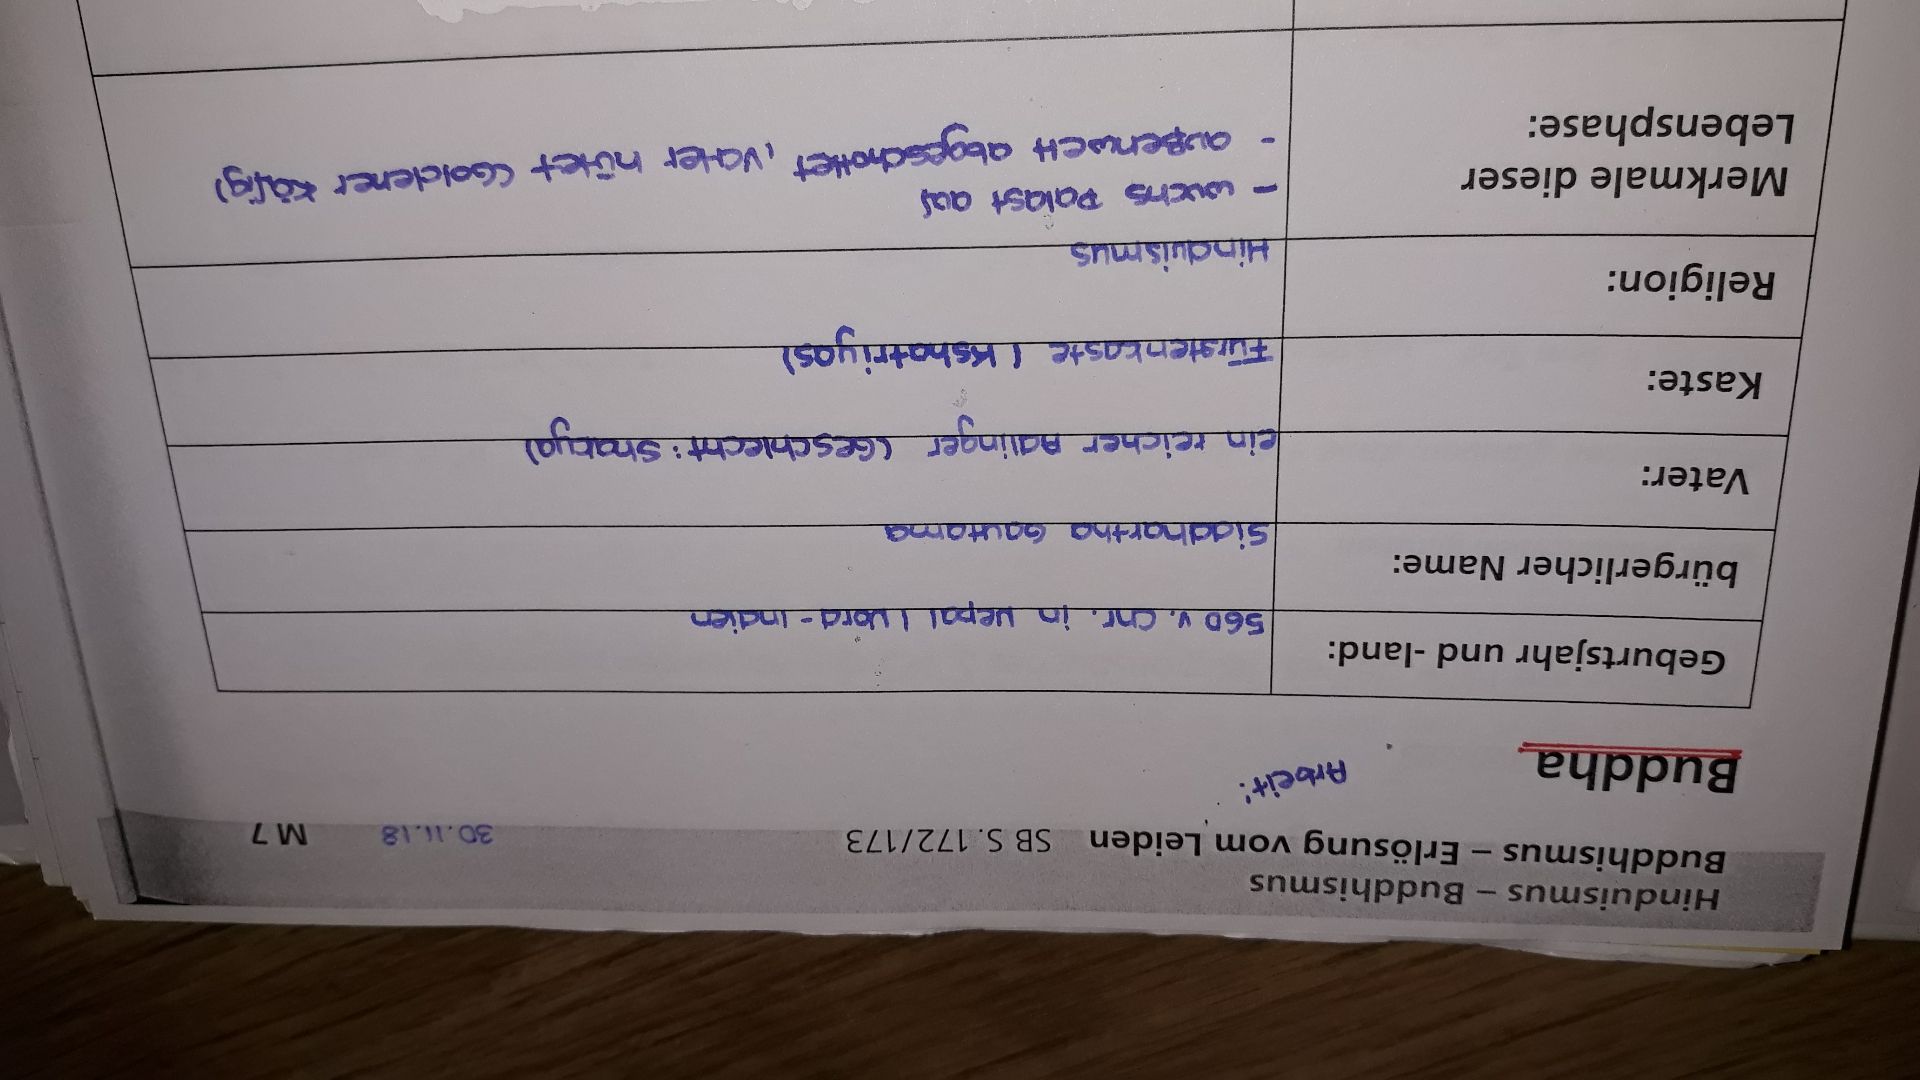 Hinduismus – Buddhismus
Buddhismus – Erlösung vom Leiden SB S. 172/173 30.11.18 M 7
Buddha Arbeit:
Geburtsjahr und -land: 560 v. Chr. in Nepal / Nord-Indien
bürgerlicher Name: Siddhartha Gautama
Vater: ein reicher Adlinger (Geschlecht: Shakya)
Kaste: Fürstenkaste (Kshatriyas)
Religion: Hinduismus
Merkmale dieser - wuchs Palast auf
Lebensphase: - außenwelt abgeschottet, Vater hütet (Goldener Käfig)